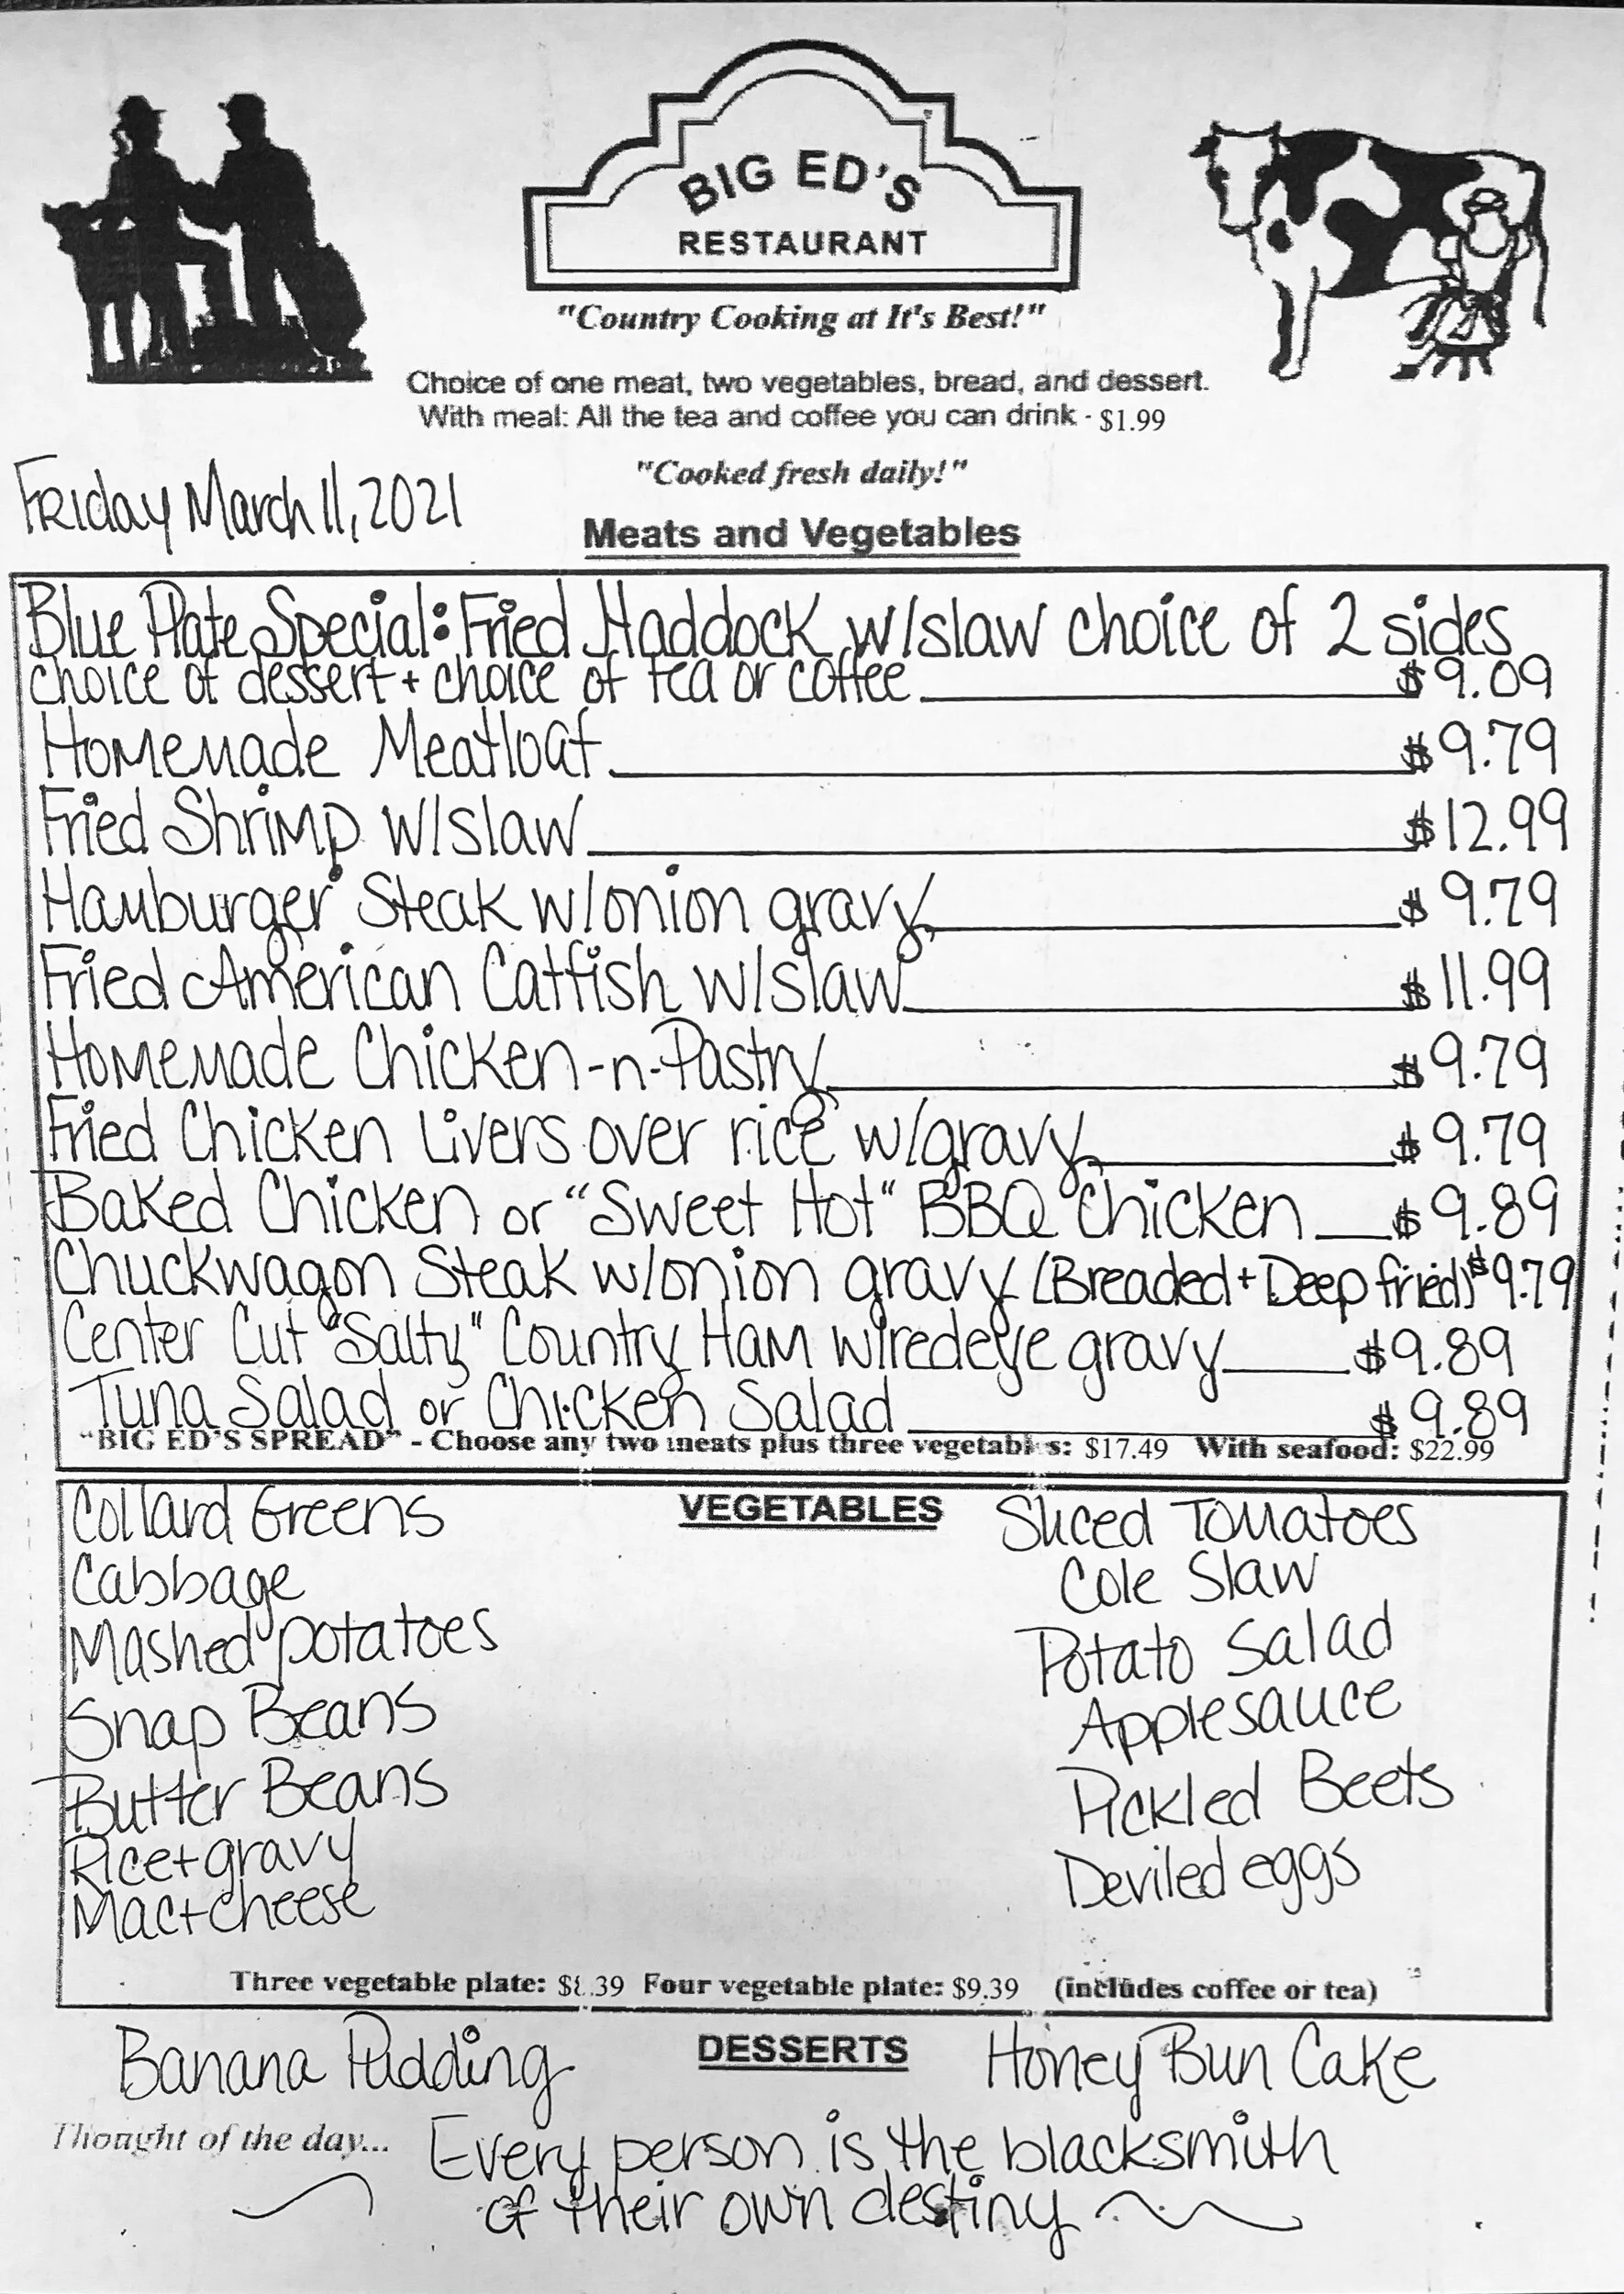 BIG ED'S
RESTAURANT
"Country Cooking at It's Best!"
Choice of one meat, two vegetables, bread, and dessert.
With meal: All the tea and coffee you can drink - $1.99
"Cooked fresh daily!"
Friday March 11, 2021
Meats and Vegetables
Blue Plate Special: Fried Haddock w/slaw choice of 2 sides
choice of dessert + choice of tea or coffee $9.09
Homemade Meatloaf $9.79
Fried Shrimp w/slaw $12.99
Hamburger Steak w/onion gravy $9.79
Fried American Catfish w/slaw $11.99
Homemade Chicken-n-Pastry $9.79
Fried Chicken Livers over rice w/gravy $9.79
Baked Chicken or "Sweet Hot" BBQ Chicken $9.89
Chuckwagon Steak w/onion gravy (Breaded + Deep fried) $9.79
Center Cut "Salty" Country Ham w/redeye gravy $9.89
Tuna Salad or Chicken Salad $9.89
"BIG ED'S SPREAD" - Choose any two meats plus three vegetables: $17.49 With seafood: $22.99
VEGETABLES
Collard Greens
Cabbage
Mashed potatoes
Snap Beans
Butter Beans
Rice + gravy
Mac + cheese
Sliced Tomatoes
Cole Slaw
Potato Salad
Applesauce
Pickled Beets
Deviled eggs
Three vegetable plate: $8.39 Four vegetable plate: $9.39 (includes coffee or tea)
DESSERTS
Banana Pudding
Honey Bun Cake
Thought of the day...
Every person is the blacksmith
of their own destiny